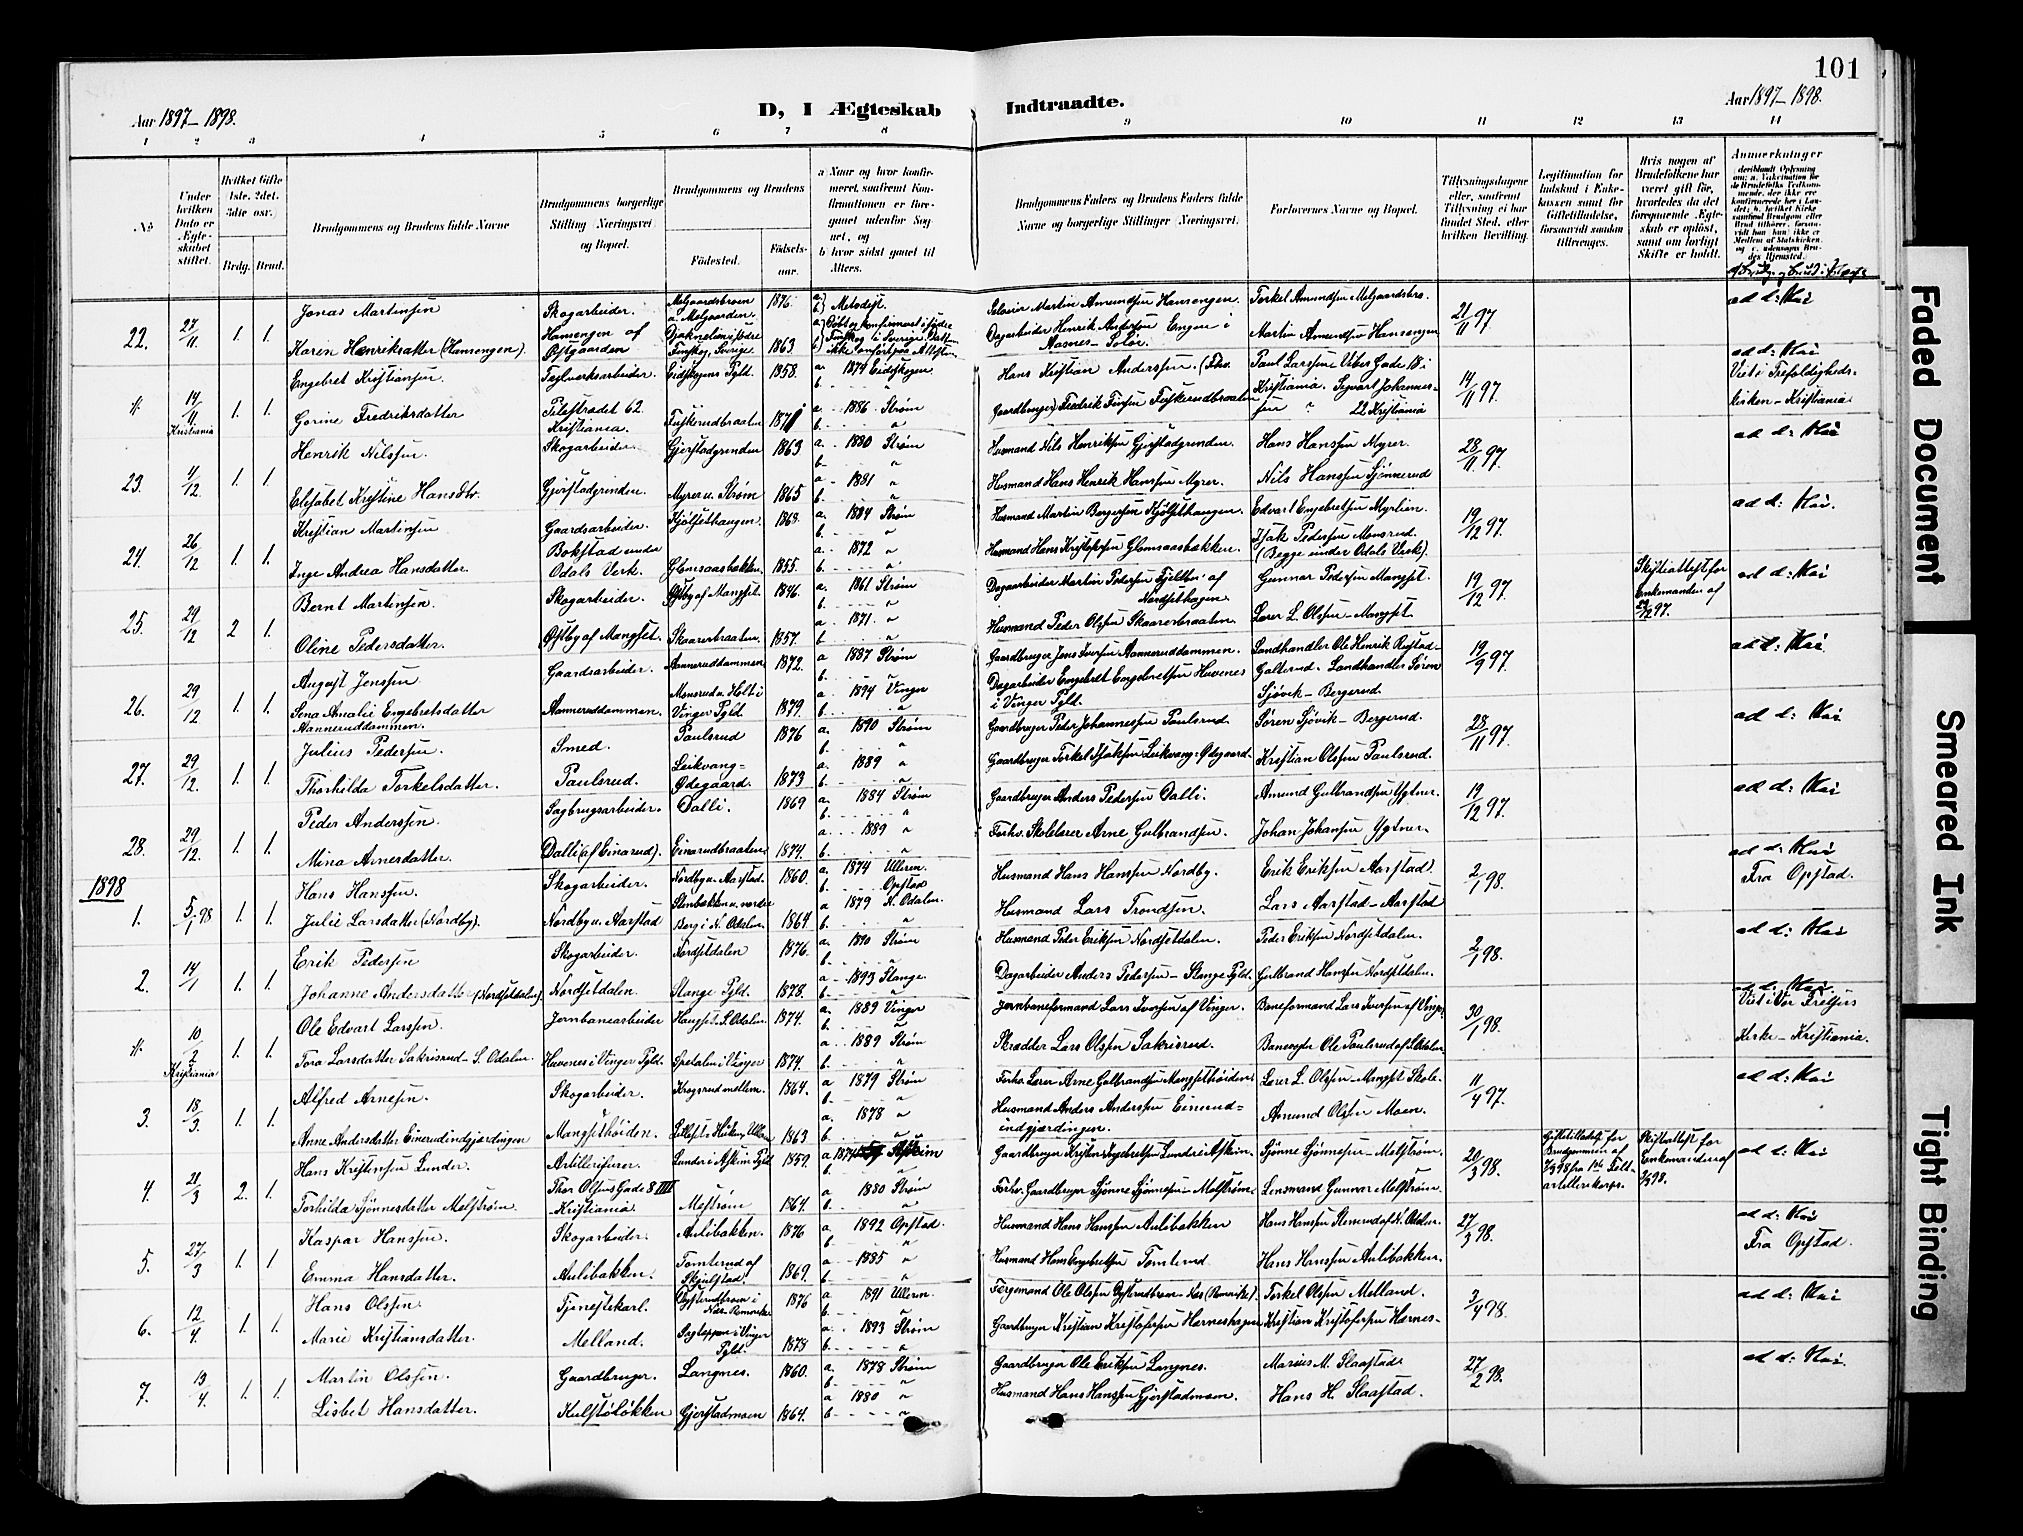 101
Aar 1897 – 1898.
D, I Ægteskab Indtraadte.
Aar 1897 – 1898.
1 2 3 4 5 6 7 8 9 10 11 12 13 14
No.
Under hvilken Dato er Ægteskabet stiftet.
Hvilket Gifte 1ste, 2det, 3die osv.)
Brdg. Brud.
Brudgommens og Brudens fulde Navne
Brudgommens borgerlige Stilling (Næringsvei) og Bopæl.
Brudgommens og Brudens
Födested.
Födselsaar.
a) Naar og hvor konfirmeret, saafremt Konfirmationen er foregaaet udenfor Sognet, og
b) hvor sidst gaaet til Alters.
Brudgommens Faders og Brudens Faders fulde Navne og borgerlige Stillinger (Næringsvei).
Forlovernes Navne og Bopæl.
Tillysningsdagene eller, saafremt Tillysning ei har fundet Sted, efter hvilken Bevilling.
Legitimation for Indskud i Enkekassen samt for Giftetilladelse, forsaavidt saadan tiltrænges.
Hvis nogen af Brudefolkene har været gift för, hvorledes da det foregaaende Ægteskab er oplöst, samt om lovligt Skifte er holdt.
Anmærkninger
22. 27/11 1. 1. Jonas Martinsen Skogarbeider. 1876. Metodist. Martin Amundsen Hansengen. Torkel Amundsen Melgaardsbro. 21/11 97 ad d: Nei
Karen Henriksdatter (Hansengen). Hansengen af Østgaarden 1863 Dagarbeider Henrik Andersen Enger i Aasnes – Solør. Martin Amundsen Hansengen
Engebret Kristiansen. Teglverksarbeider. Eidskogens Pgld. 1858. a. 1874 Eidskogen Hans Kristian Anderssen. Paul Larssen Vibes Gade 18 i 14/11 97 ad d: Nei
14/11 Kristiania 1. 1. Gorine Fredriksdatter Pilestrædet 62. Kristiania. Fuskerudbraaten 1871 a. 1886. Strøm Kristiania. Sigvart Johannessen " 22 Kristiania Vist i Trefoldighedskirken – Kristiania
23. 4/12 1. 1. Henrik Nilssen. Skogarbeider. Gjerstadgrenden 1863 a. 1880 Strøm Husmand Nils Henriksen Gjerstadgrenden. Hans Hanssen Myrer. 28/11 97. ad d: Nei
Elisabet Kristine Hansdtr. Gjerstadgrinden. Myrer u. Strøm 1865 a. 1881 " Husmand Hans Henrik Hanssen Myrer. Nils Hanssen Sjønnerud
24. 26/12 1. 1. Kristian Martinsen Gaardsarbeider. Kjølsethaugen. 1868. a. 1884 Strøm Husmand Martin Borgersen Kjølsethaugen. Edvart Engebretsen Myrlien. 19/12 97. ad d: Nei.
Inge Andrea Hansdatter. Bokstad under Odals Verk. Glomsaasbakken. 1855. a. 1872 " Husmand Hans Kristofersen Glomsaasbakken. Isak Pedersen Monsrud. (Begge under Odals Verk).
25. 29/12 2 1. Bernt Martinsen. Skogarbeider. Østby af Mangset. 1846. a. 1861 Strøm Dagarbeider Martin Pedersen af Nordsethagen. Gunnar Pedersen Mangset. 19/12 97 Skifteattest for Enkemanden af 97. ad d: Nei
Oline Pedersdatter. Østby af Mangset. Skaarerbraaten. 1857. a. 1871. " Husmand Peder Olssen Skaarerbraaten. Lærer L. Olssen – Mangset
26. 29/12 1. 1. August Jenssen Gaardsarbeider. Aanneruddammen 1872. a 1887 Strøm Gaardbruger Jens Iversen Aanneruddammen. Landhandler Ole Henrik Rustad – Galterud. Landhandler Søren Sjøvik – Bergerud. 19/9 97. ad d: Nei
Sena Amalie Engebretsdatter Aanneruddammen. Aanneruddammen. Monsrud u. Holt i Vinger Pgld. 1879. a. 1894 Vinger Dagarbeider Engebret Engebretsen Huvenes i Vinger Pgld.
27. 29/12. 1. 1. Julius Pedersen. Smed. Paulsrud 1876 a. 1890 Strøm Gaardbruger Peder Johannessen Paulsrud. Søren Sjøvik – Bergerud. 28/11 97. ad d: Nei
Thorhilda Torkelsdatter. Paulsrud. Leikvang = Ødegaard. 1873 a. 1889 " Gaardbruger Torkel Isaksen Leikvang = Ødegaard. Kristian Olssen Paulsrud.
28. 29/12. 1. 1. Peder Anderssen. Sagbrugsarbeider. Dalli. 1869 a. 1884 Strøm Gaardbruger Anders Pedersen Dalli. Amund Gulbrandsen Ygtner. 19/12 97. ad d: Nei
Mina Arnesdatter. Dalli (af Einarud). Einarudbraaten. 1874. a 1889 " Forhv. Skolelærer Arne Gulbrandsen. Johan Johansen Ygtner.
1898
1. 5/1 98 1. 1. Hans Hanssen. Skogarbeider. Nordby u. Aarstad. 1860. a. 1874 Ullern. Opstad Husmand Hans Hanssen Nordby. Erik Eriksen Aarstad. 2/1 98. ad d: Nei Fra Opstad.
Julie Larsdatter (Nordby). Nordby u. Aarstad 1864 a 1879 N. Odalen. Husmand Lars Trondsen. Lars Aarstad – Aarstad
2. 14/1 1. 1. Erik Pedersen Skogarbeider. Nordsetdalen 1876. a. 1890 Strøm Husmand Peder Eriksen Nordsetdalen. Peder Eriksen Nordsetdalen. 2/1 98. ad d: Nei
Johanne Andersdatter (Nordsetdalen). Nordsetdalen. Stange Pgld. 1878. a. 1893 Stange. Dagarbeider Anders Pedersen – Stange Pgld. Gulbrand Hanssen Nordsetdalen.
10/2 Kristiania 1. 1. Ole Edvart Larssen. Jernbanearbeider 1874. a 1889 Vinger Jernbaneformand Lars Iversen af Vinger. Baneformand Lars Iversen af Vinger 30/1 98. ad d: Nei. Vist i Vor Frelsers Kirke – Kristiania.
Tora Larsdatter Sakrisrud – S. Odalen. Huvenes i Vinger Pgld. Spetalen i Vinger 1874. a 1889 Strøm Skrædder Lars Olssen Sakrisrud. Banevogter Ole Paulsrud af S. Odalen
3. 18/3 1. 1. Alfred Arnesen. Skogarbeider. Krogsrud mellem. 1864. a 1879 Strøm Forhv. Lærer Arne Gulbrandsen Mangsethøiden. Lærer L. Olssen – Mangset Skole. 11/4 97. ad d: Nei
Anne Andersdatter Einerudindgjærdingen Mangsethøiden. 1863 a. 1878 " Husmand Anders Anderssen Einerud = indgjærdingen. Amund Olssen Moen.
4. 21/3 2. 1. Hans Kristensen Lunder. Artillerifurer. Lunder i Askim Pgld. 1859. a 1874 Askim Gaardbruger Kristen Ingebretsen Lunder i Askim. Sjønne Sjønnesen – Melstrøm. 20/3 98. Giftetilladelse for Brudgommen af 7/3 98 fra 1ste Felt-artillerikorps. Skifteattest for Enkemanden af 98. ad d: Nei
Torhilda Sjønnesdatter Melstrøm. Thor Olsens Gade 8 IIII Kristiania. Melstrøm 1864. a 1880 Strøm Forhv. Gaardbruger Sjønne Sjønnesen – Melstrøm. Lensmand Gunnar Melstrøm.
5. 27/3 1. 1. Kaspar Hanssen. Skogarbeider. Aulibakken. 1876 a 1892 Opstad. Husmand Hans Hanssen Aulibakken Hans Hanssen Stenerud af N. Odalen. 27/3 98. ad d: Nei Fra Opstad.
Emma Hansdatter. Aulibakken. Tomterud af Skjulstad. 1869. a 1885 " Husmand Hans Engebretsen Tomterud. Hans Hanssen Aulibakken.
6. 12/4 1. 1. Hans Olssen. Tjenestekarl. 1876 a 1891 Ullern. Torkel Olssen Melland. 3/4 98. ad d: Nei
Marie Kristiansdatter. Melland. Sagtoppen i Vinger Pgld. 1878 a. 1893 Strøm Gaardbruger Kristian Kristofersen Harneshagen Kristian Kristofersen Harnes-
7. 13/4 1. 1. Martin Olssen. Gaardbruger. Langnes. 1860. a. 1878 Strøm Gaardbruger Ole Eriksen Langnes. Marius M. Slaastad. 27/2 98. ad d: Nei
Lisbet Hansdatter. Kulstøløkken Gjerstadmoen 1864. a 1880 " Husmand Hans Hanssen Gjerstadmoen. Hans H. Slaastad.
Faded Document
Smeared Ink
Tight Binding